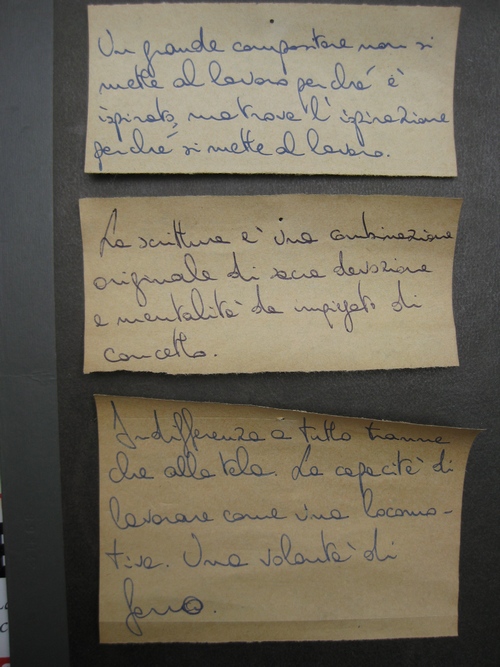 Un grande compositore non si
mette al lavoro perché è
ispirato, ma trova l'ispirazione
perché si mette al lavoro.
La scrittura è una combinazione
originale di sacra devozione
e mentalità da impiegato di
concetto.
Indifferenza a tutto tranne
che alla tela. La capacità di
lavorare come una locomo-
tiva. Una volontà di
ferro.